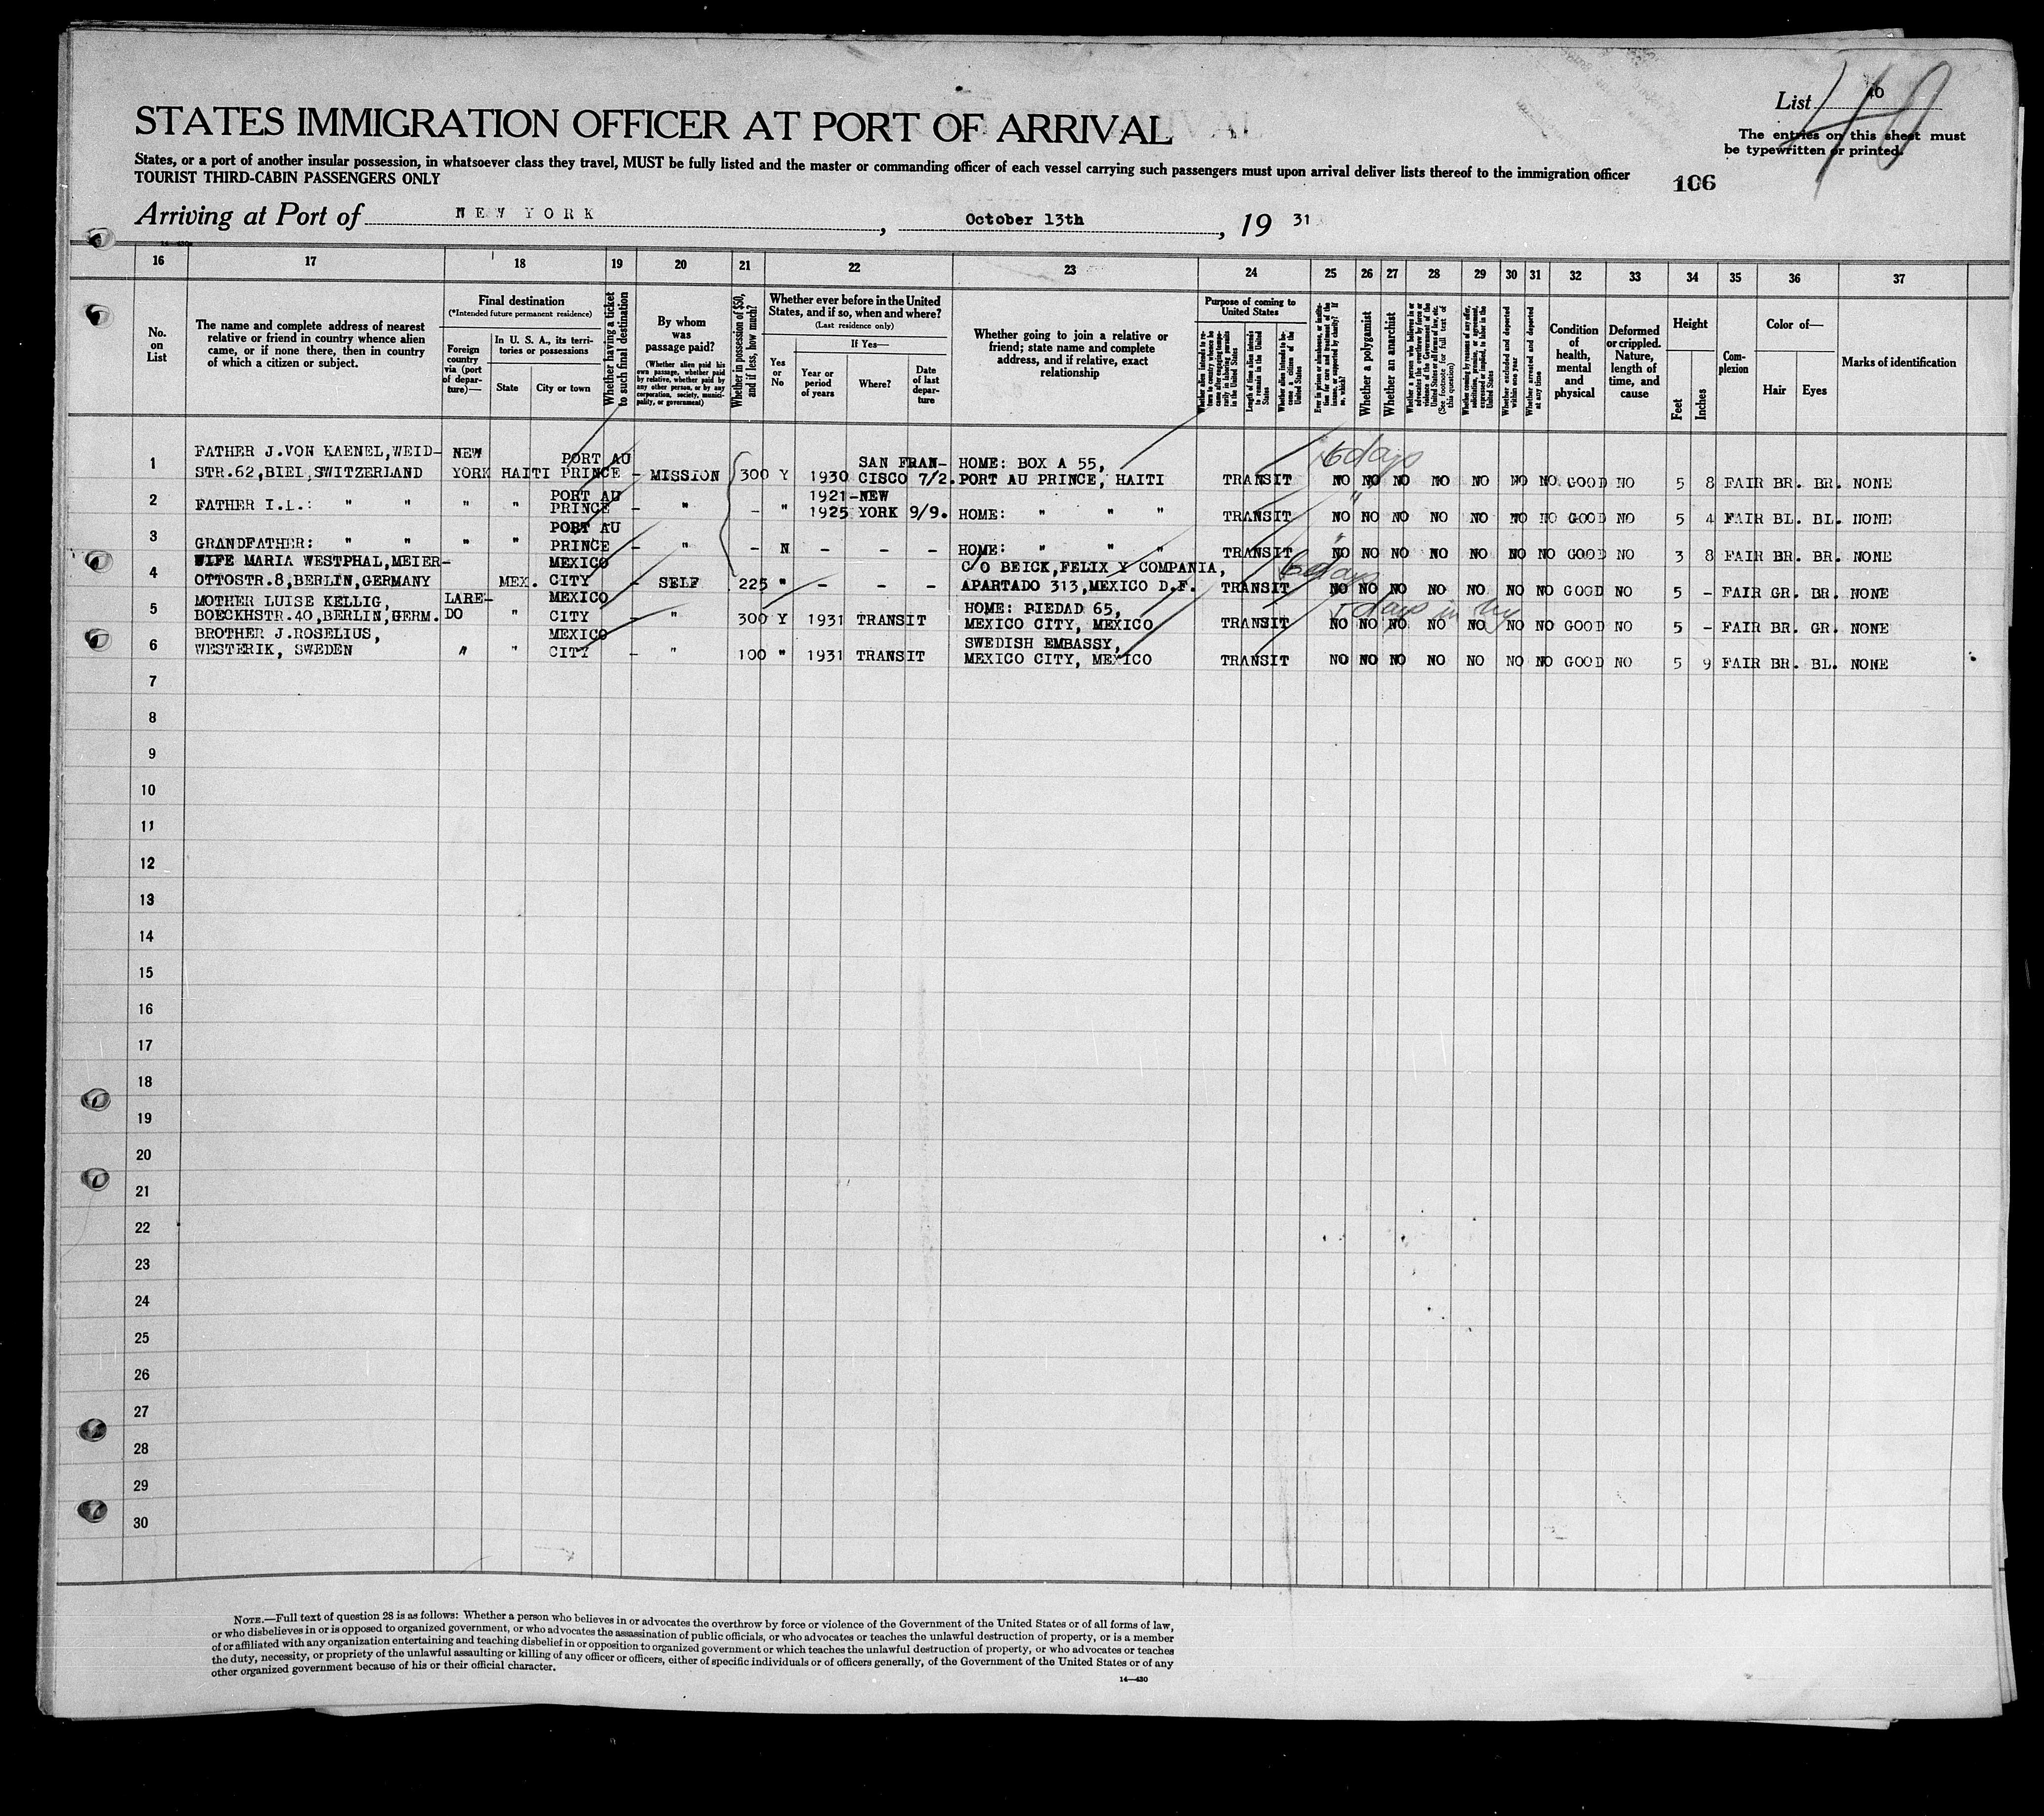 List 40
40
STATES IMMIGRATION OFFICER AT PORT OF ARRIVAL
The entries on this sheet must
be typewritten or printed.
States, or a port of another insular possession, in whatsoever class they travel, MUST be fully listed and the master or commanding officer of each vessel carrying such passengers must upon arrival deliver lists thereof to the immigration officer
TOURIST THIRD-CABIN PASSENGERS ONLY
106
Arriving at Port of NEW YORK, October 13th, 19 31
14-430
16 17 18 19 20 21 22 23 24 25 26 27 28 29 30 31 32 33 34 35 36 37
No.
on
List
The name and complete address of nearest
relative or friend in country whence alien
came, or if none there, then in country
of which a citizen or subject.
Final destination
(*Intended future permanent residence)
Foreign
country
via (port
of depar-
ture)—
In U. S. A., its terri-
tories or possessions
State
City or town
Whether having a ticket
to such final destination
By whom
was
passage paid?
(Whether alien paid his
own passage, whether paid
by relative, whether paid by
any other person, or by any
corporation, society, munici-
pality, or government)
Whether in possession of $50,
and if less, how much?
Whether ever before in the United
States, and if so, when and where?
(Last residence only)
Yes
or
No
If Yes—
Year or
period
of years
Where?
Date
of last
depar-
ture
Whether going to join a relative or
friend; state name and complete
address, and if relative, exact
relationship
Purpose of coming to
United States
Whether alien intends to re-
turn to country whence he
came after engaging tempo-
rarily in laboring pursuits
in the United States
Length of time alien intends
to remain in the United
States
Whether alien intends to be-
come a citizen of the
United States
Ever in prison or almshouse, or institu-
tion for care and treatment of the
insane, or supported by charity? If
so, which?
Whether a polygamist
Whether an anarchist
Whether a person who believes in or
advocates the overthrow by force or
violence of the Government of the
United States or all forms of law, etc.
(See footnote for full text of
this question)
Whether coming by reason of any offer,
solicitation, promise, or agreement,
expressed or implied, to labor in the
United States
Whether excluded and deported
within one year
Whether arrested and deported
at any time
Condition
of
health,
mental
and
physical
Deformed
or crippled.
Nature,
length of
time, and
cause
Height
Feet
Inches
Com-
plexion
Color of—
Hair
Eyes
Marks of identification
6 days
FATHER J.VON KAENEL,WEID- NEW PORT AU SAN FRAN- HOME: BOX A 55,
1 STR.62,BIEL,SWITZERLAND YORK HAITI PRINCE - MISSION 300 Y 1930 CISCO 7/2. PORT AU PRINCE, HAITI TRANSIT NO NO NO NO NO NO NO GOOD NO 5 8 FAIR BR. BR. NONE
PORT AU 1921-NEW "
2 FATHER I.L.: " " " " PRINCE - " - " 1925 YORK 9/9. HOME: " " " TRANSIT NO NO NO NO NO NO NO GOOD NO 5 4 FAIR BL. BL. NONE
PORT AU "
3 GRANDFATHER: " " " " PRINCE - " - N - - - HOME: " " " TRANSIT NO NO NO NO NO NO NO GOOD NO 3 8 FAIR BR. BR. NONE
WIFE MARIA WESTPHAL,MEIER- MEXICO C/O BEICK,FELIX Y COMPANIA, 6 days
4 OTTOSTR.8,BERLIN,GERMANY MEX. CITY - SELF 225 " - - - APARTADO 313,MEXICO D.F. TRANSIT NO NO NO NO NO NO NO GOOD NO 5 - FAIR GR. BR. NONE
MOTHER LUISE KELLIG, LARE- MEXICO HOME: PIEDAD 65, 5 days in ny
5 BOECKHSTR.40,BERLIN,GERM. DO " CITY - " 300 Y 1931 TRANSIT MEXICO CITY, MEXICO TRANSIT NO NO NO NO NO NO NO GOOD NO 5 - FAIR BR. GR. NONE
BROTHER J.ROSELIUS, MEXICO SWEDISH EMBASSY,
6 WESTERIK, SWEDEN " " CITY - " 100 " 1931 TRANSIT MEXICO CITY, MEXICO TRANSIT NO NO NO NO NO NO NO GOOD NO 5 9 FAIR BR. BL. NONE
7
8
9
10
11
12
13
14
15
16
17
18
19
20
21
22
23
24
25
26
27
28
29
30
NOTE.—Full text of question 28 is as follows: Whether a person who believes in or advocates the overthrow by force or violence of the Government of the United States or of all forms of law,
or who disbelieves in or is opposed to organized government, or who advocates the assassination of public officials, or who advocates or teaches the unlawful destruction of property, or is a member
of or affiliated with any organization entertaining and teaching disbelief in or opposition to organized government or which teaches the unlawful destruction of property, or who advocates or teaches
the duty, necessity, or propriety of the unlawful assaulting or killing of any officer or officers, either of specific individuals or of officers generally, of the Government of the United States or of any
other organized government because of his or their official character.
14—430